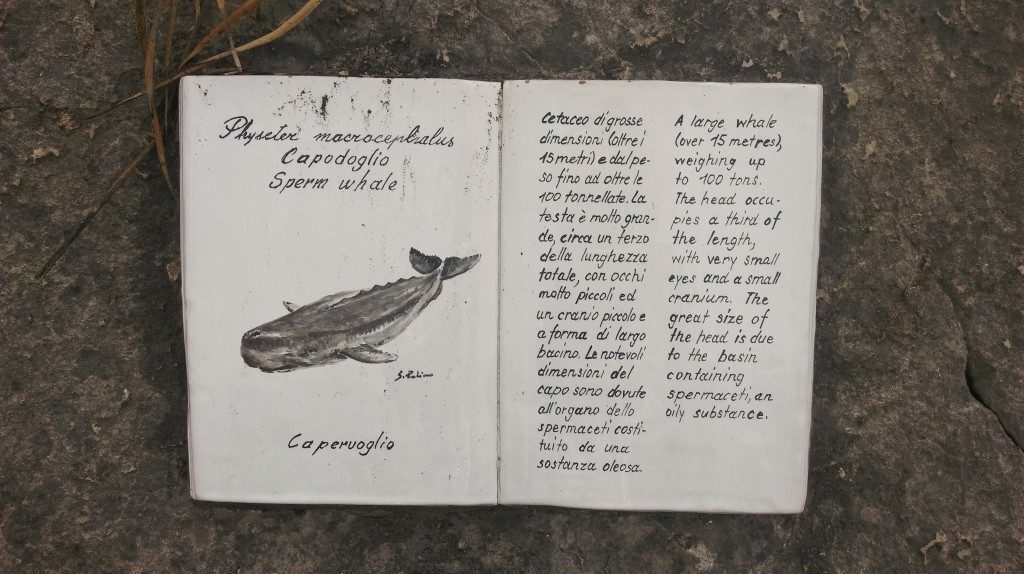 Physeter macrocephalus
Capodoglio
Sperm whale
Capervoglio
Cetaceo di grosse
dimensioni (oltre i
15 metri) e dal pe-
so fino ad oltre le
100 tonnellate. La
testa è molto gran-
de, circa un terzo
della lunghezza
totale, con occhi
molto piccoli ed
un cranio piccolo e
a forma di largo
bacino. Le notevoli
dimensioni del
capo sono dovute
all'organo dello
spermaceti costi-
tuito da una
sostanza oleosa.
A large whale
(over 15 metres),
weighing up
to 100 tons.
The head occu-
pies a third of
the length,
with very small
eyes and a small
cranium. The
great size of
the head is due
to the basin
containing
spermaceti, an
oily substance.